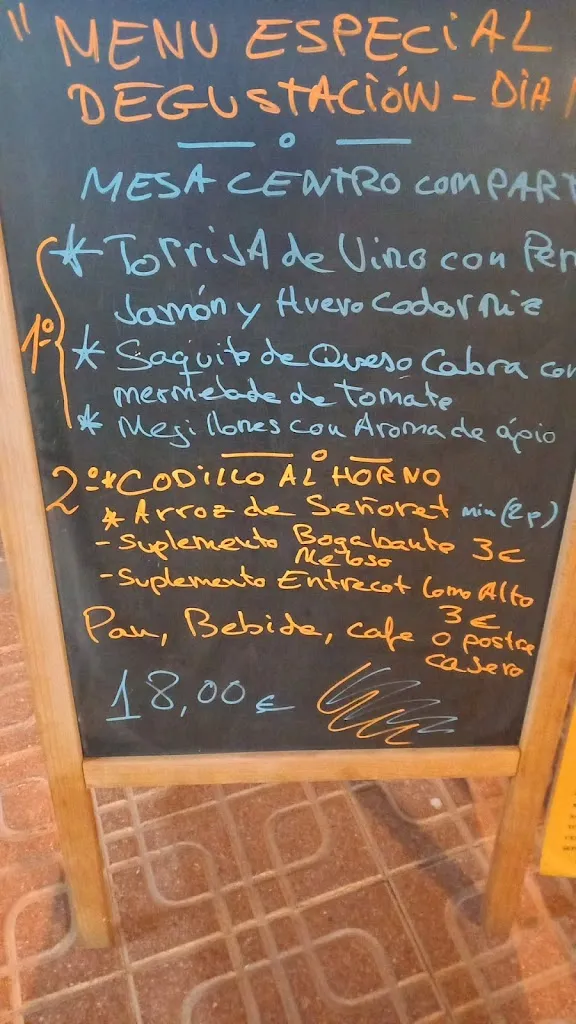 "MENU ESPECIAL
DEGUSTACIÓN - DIA
MESA CENTRO COMPART
1º
* TORRIJA de Vino con Per
Jamón y Huevo Codorniz
* Saquito de Queso Cabra con
mermelada de tomate
* Mejillones con Aroma de ápio
2º * CODILLO AL HORNO
* Arroz de Señoret min (2p)
- Suplemento Bogabante 3€
Meloso
- Suplemento Entrecot Lomo Alto
3€
Pan, Bebida, cafe o postre
casero
18,00 €